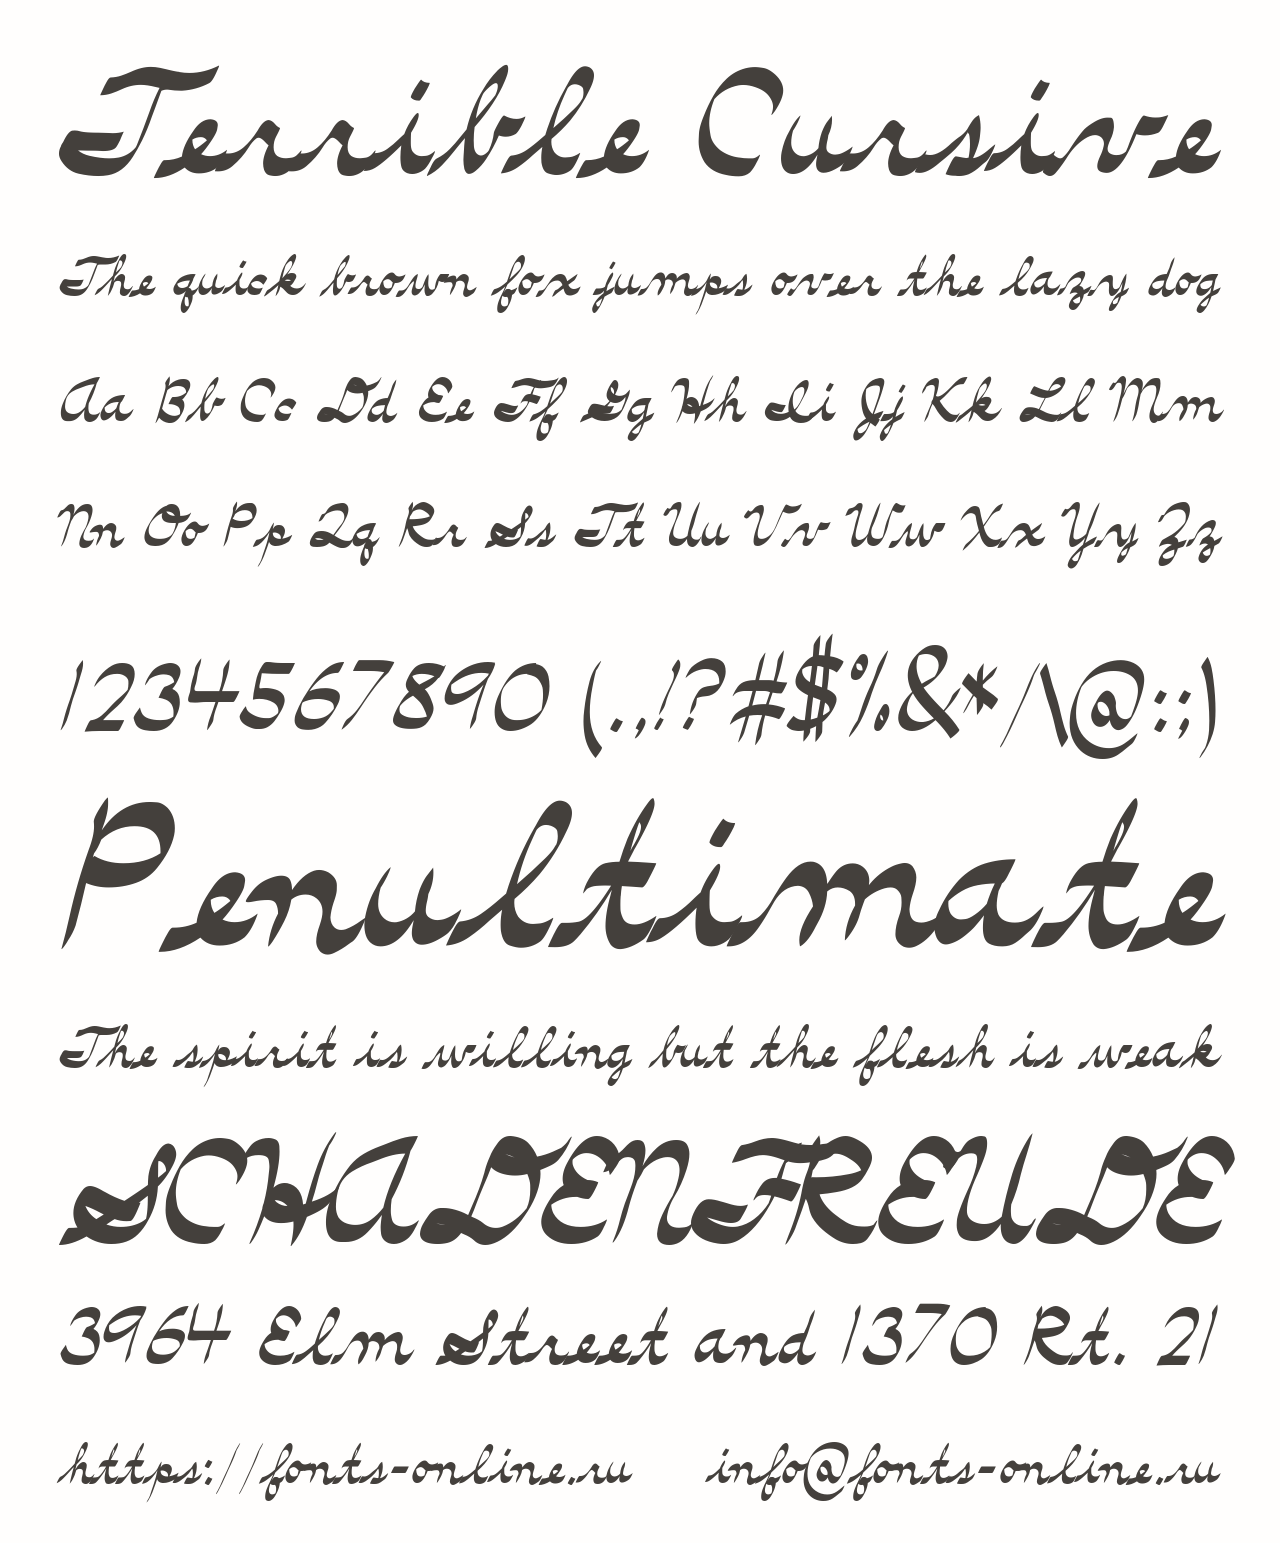 Terrible Cursive
The quick brown fox jumps over the lazy dog
Aa Bb Cc Dd Ee Ff Gg Hh Ii Jj Kk Ll Mm
Nn Oo Pp Qq Rr Ss Tt Uu Vv Ww Xx Yy Zz
1234567890 (.,!?#$%&*/\@:;)
Penultimate
The spirit is willing but the flesh is weak
SCHADENFREUDE
3964 Elm Street and 1370 Rt. 21
https://fonts-online.ru info@fonts-online.ru